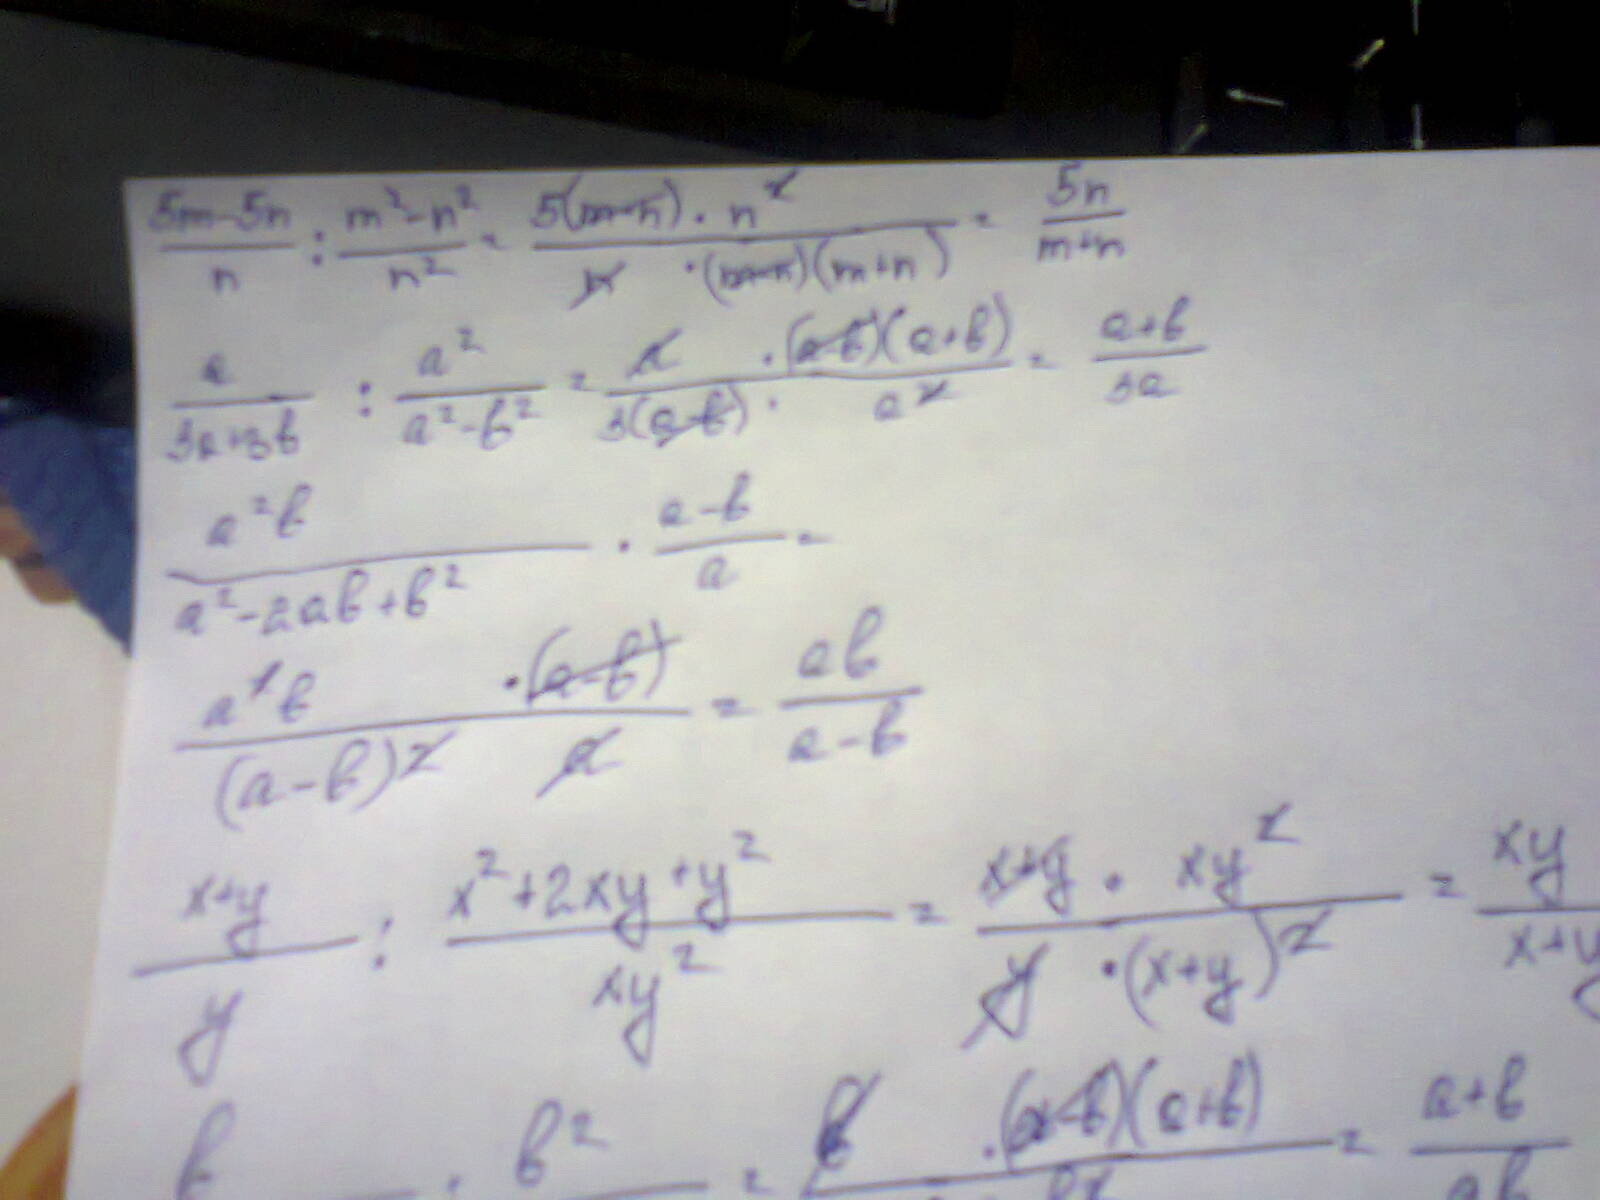 (5m-5n)/n : (m²-n²)/n² = (5(m-n) · n²)/(n · (m-n)(m+n)) = 5n/(m+n)
a/(3a+3b) : a²/(a²-b²) = (a · (a-b)(a+b))/(3(a-b) · a²) = (a+b)/(3a)
a²b/(a²-2ab+b²) · (a-b)/a =
(a²b · (a-b))/((a-b)² a) = ab/(a-b)
(x+y)/y : (x²+2xy+y²)/(xy²) = (x+y · xy²)/(y · (x+y)²) = xy/(x+y
b : b² = b · (a-b)(a+b) = (a+b)/(ab